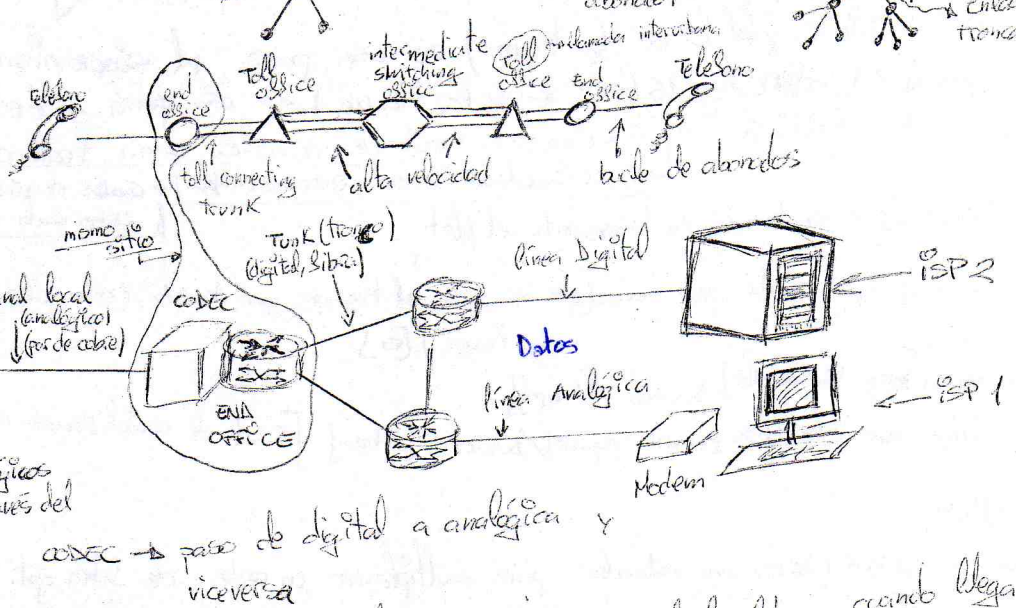 abonado
enlaz
tronca
Teléfono
end
office
Toll
office
intermediate
switching
office
Toll
office
llamada interurbana
End
office
Teléfono
toll connecting
trunk
alta velocidad
bucle de abonados
mismo
sitio
Tunk (tronco)
(digital, fibra)
línea Digital
iSP 2
nal local
(analógico)
(par de cobre)
CODEC
Datos
END
OFFICE
línea Analógica
iSP 1
Modem
gicos
avés del
CODEC → paso de digital a analógica y
viceversa
cuando llega